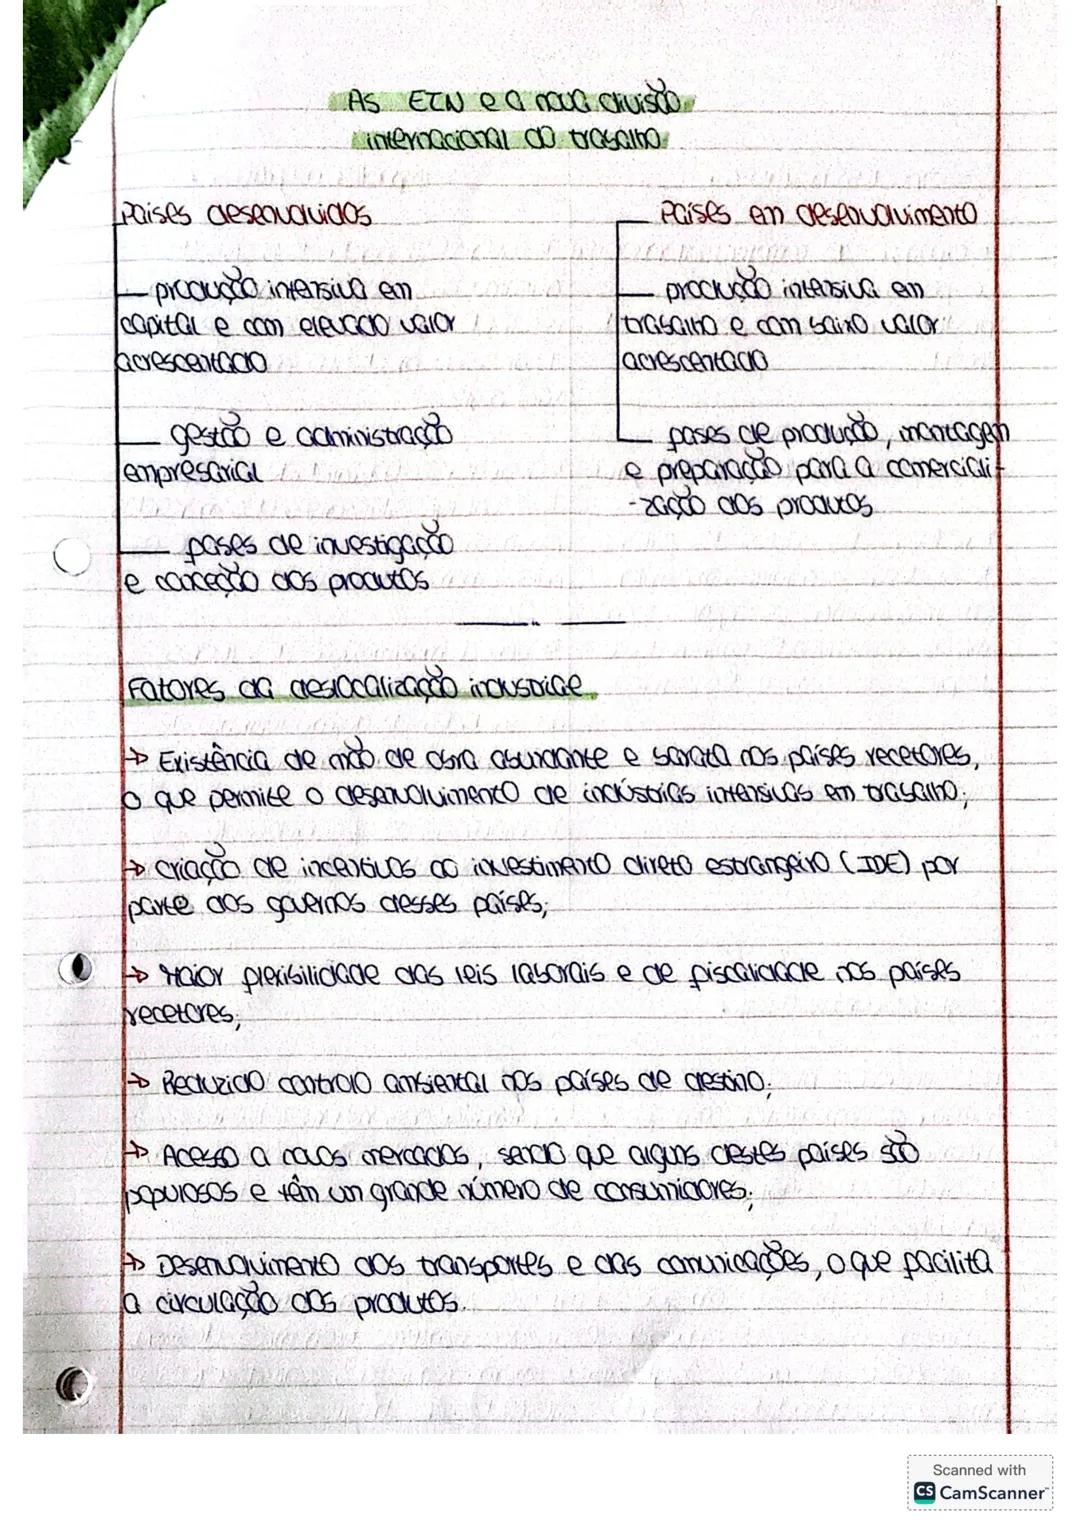 As ETN e a nova divisão
internacional do trabalho
Países desenvolvidos
— produção intensiva em
capital e com elevado valor
acrescentado
— gestão e administração
empresarial
— fases de investigação
e conceção dos produtos
Países em desenvolvimento
— produção intensiva em
trabalho e com baixo valor
acrescentado
— fases de produção, montagem
e preparação para a comerciali-
-zação dos produtos
Fatores da deslocalização
→ Existência de mão de obra abundante e barata nos países recetores,
o que permite o desenvolvimento de indústrias intensivas em trabalho;
→ Criação de incentivos ao investimento direto estrangeiro (IDE) por
parte dos governos desses países;
→ Maior flexibilidade das leis laborais e de fiscalidade nos países
recetores;
→ Reduzido controlo ambiental nos países de destino;
→ Acesso a novos mercados, sendo que alguns destes países são
populosos e têm um grande número de consumidores;
→ Desenvolvimento dos transportes e das comunicações, o que facilita
a circulação dos produtos.
Scanned with
CS CamScanner